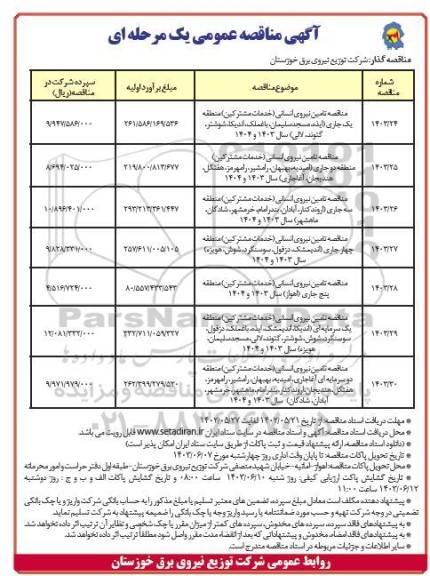 آگهی مناقصه عمومی یک مرحله ای
مناقصه گذار: شرکت توزیع نیروی برق خوزستان
شماره مناقصه
موضوع مناقصه
مبلغ برآورد اولیه
سپرده شرکت در مناقصه(ریال)
۱۴۰۳/۲۴
مناقصه تامین نیروی انسانی (خدمات مشترکین) منطقه
یک جاری (ایذه، مسجدسلیمان، باغملک، اندیکا، شوشتر،
گتوند، لالی) سال ۱۴۰۳ و ۱۴۰۴
۲۶۱/۵۸۶/۱۶۹/۵۳۶
۹/۹۴۷/۵۸۶/۰۰۰
۱۴۰۳/۲۵
مناقصه تامین نیروی انسانی (خدمات مشترکین)
منطقه دو جاری (امیدیه، بهبهان، رامشیر، رامهرمز، هفتکل،
هندیجان، آغاجاری) سال ۱۴۰۳ و ۱۴۰۴
۲۱۹/۸۰۰/۸۱۳/۶۷۷
۸/۶۹۴/۰۲۵/۰۰۰
۱۴۰۳/۲۶
مناقصه تامین نیروی انسانی (خدمات مشترکین) منطقه
سه جاری (اروندکنار، آبادان، بندرامام، خرمشهر، شادگان،
ماهشهر) سال ۱۴۰۳ و ۱۴۰۴
۲۹۳/۲۱۳/۳۶۱/۴۴۷
۱۰/۸۹۶/۴۰۱/۰۰۰
۱۴۰۳/۲۷
مناقصه تامین نیروی انسانی (خدمات مشترکین) منطقه
چهار جاری (اندیمشک، دزفول، سوسنگرد، شوش، هویزه)
سال ۱۴۰۳ و ۱۴۰۴
۲۵۷/۶۱۱/۰۰۵/۱۰۵
۹/۸۲۸/۳۳۱/۰۰۰
۱۴۰۳/۲۸
مناقصه تامین نیروی انسانی (خدمات مشترکین) منطقه
پنج جاری (اهواز) سال ۱۴۰۳ و ۱۴۰۴
۸۰/۵۵۷/۴۳۳/۵۴۳
۴/۵۱۶/۷۲۴/۰۰۰
۱۴۰۳/۲۹
مناقصه تامین نیروی انسانی (خدمات مشترکین) منطقه
یک سرمایه ای (اندیکا، اندیمشک، ایذه، باغملک، دزفول،
سوسنگرد، شوش، شوشتر، گتوند، لالی، مسجدسلیمان،
هویزه) سال ۱۴۰۳ و ۱۴۰۴
۳۳۲/۷۱۱/۰۵۹/۳۲۷
۱۲/۰۸۱/۳۳۲/۰۰۰
۱۴۰۳/۳۰
مناقصه تامین نیروی انسانی (خدمات مشترکین) منطقه
دو سرمایه ای (آغاجاری، امیدیه، بهبهان، رامشیر، رامهرمز،
هفتکل، هندیجان، اروندکنار، بندرامام، ماهشهر، خرمشهر،
آبادان، شادگان) سال ۱۴۰۳ و ۱۴۰۴
۲۶۲/۳۹۹/۲۷۹/۵۳۰
۹/۹۷۱/۹۷۹/۰۰۰
* مهلت دریافت اسناد مناقصه: از تاریخ ۱۴۰۳/۰۵/۲۱ لغایت ۱۴۰۳/۰۵/۲۷
* محل دریافت اسناد مناقصه: آگهی و اسناد مناقصه در سایت ستاد ایران www.setadiran.ir قابل رویت می باشد.
(دانلود اسناد مناقصه، ارائه پیشنهاد قیمت و ثبت پاکات از طریق سایت ستاد ایران امکان پذیر است)
* تاریخ تحویل پاکات مناقصه: تا پایان وقت اداری روز چهارشنبه مورخ ۱۴۰۳/۰۶/۰۷
* محل تحویل پاکات مناقصه: اهواز- امانیه- خیابان شهید منصفی شرکت توزیع نیروی برق خوزستان- طبقه اول دفتر حراست و امور محرمانه
* تاریخ گشایش پاکت ارزیابی کیفی: روز شنبه ۱۴۰۳/۰۶/۱۰ ساعت ۰۸:۰۰ و تاریخ گشایش پاکات الف و ب و ج: روز دوشنبه
۱۴۰۳/۰۶/۱۲ ساعت ۱۱:۰۰
* پیشنهاد دهنده مکلف است معادل مبلغ سپرده، تضمین های معتبر تسلیم یا مبلغ مذکور را به حساب بانکی شرکت واریز و یا چک بانکی
تضمینی در وجه شرکت تهیه و حسب مورد ضمانتنامه یا رسید واریز وجه یا چک بانکی را ضمیمه پیشنهاد به شرکت تسلیم نماید.
* به پیشنهادهای فاقد سپرده، سپرده های مخدوش، سپرده های کمتر از میزان مقرر یا چک شخصی و نظایر آن ترتیب اثر داده نخواهد شد.
* به پیشنهادهای فاقد امضاء، مخدوش و پیشنهاداتی که بعد از انقضاء مدت مقرر واصل شود مطلقا ترتیب اثر داده نخواهد شد.
* سایر اطلاعات و جزئیات مربوطه در اسناد مناقصه مندرج است.
روابط عمومی شرکت توزیع نیروی برق خوزستان